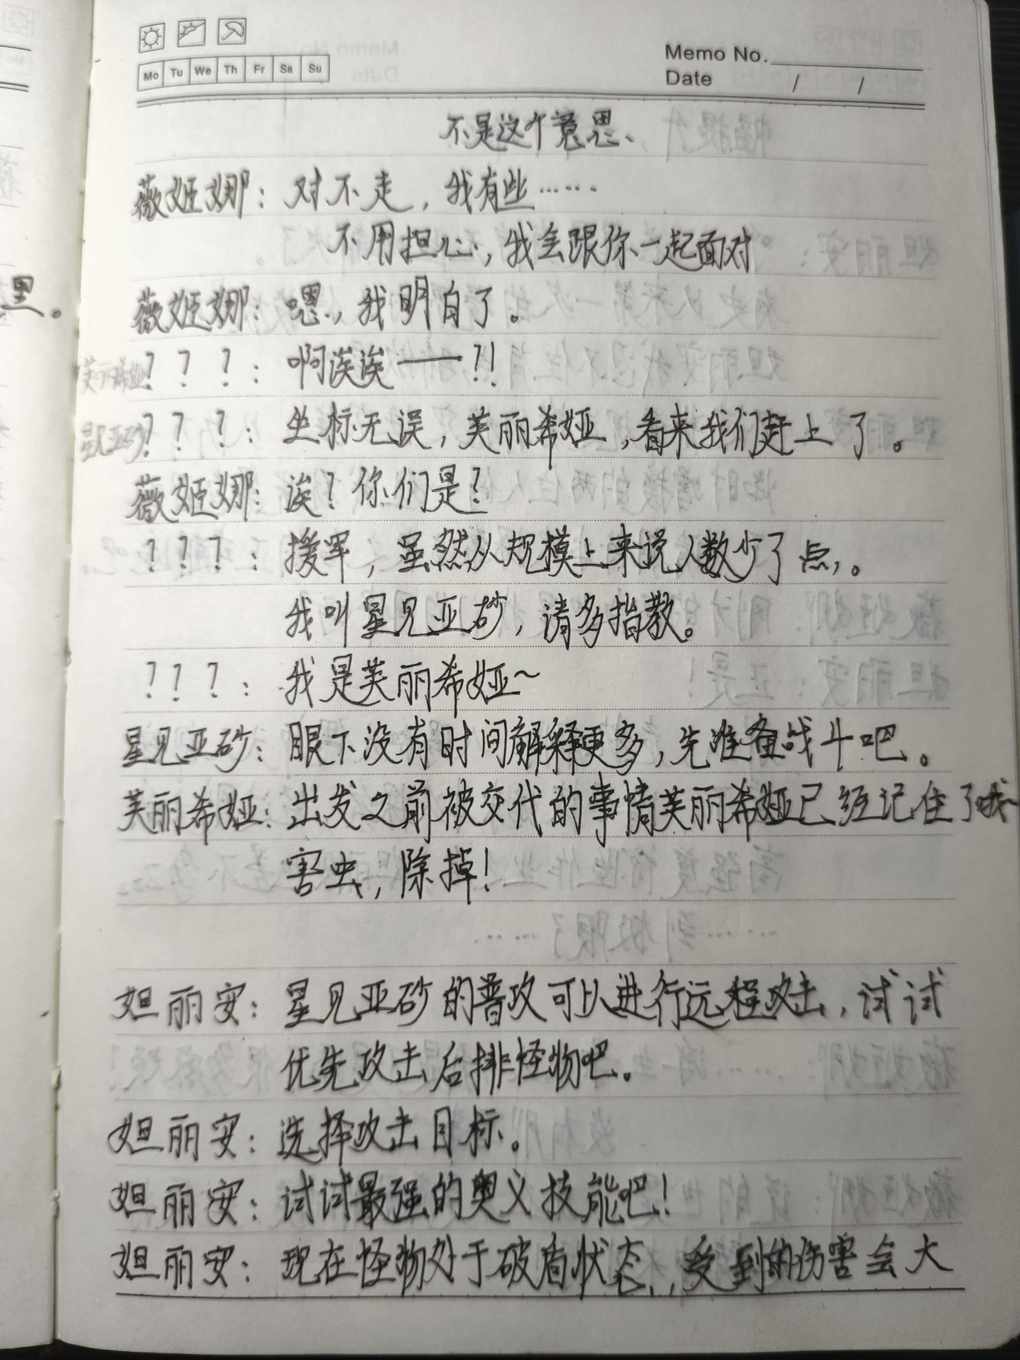 Mo Tu We Th Fr Sa Su
Memo No.
Date / /
不是这个意思、
薇姬娜：对不走，我有些……
不用担心，我会跟你一起面对
薇姬娜：嗯，我明白了。
？？？：啊诶诶——?!
？？？：坐标无误，芙丽希娅，看来我们赶上了。
薇姬娜：诶？你们是？
？？？：援军，虽然从规模上来说人数少了点。
我叫星见亚砂，请多指教。
？？？：我是芙丽希娅~
星见亚砂：眼下没有时间解释更多，先准备战斗吧。
芙丽希娅：出发之前被交代的事情芙丽希娅已经记住了哦~
害虫，除掉！
妲丽安：星见亚砂的普攻可以进行远程攻击，试试
优先攻击后排怪物吧。
妲丽安：选择攻击目标。
妲丽安：试试最强的奥义技能吧！
妲丽安：现在怪物处于破盾状态，受到的伤害会大
里。